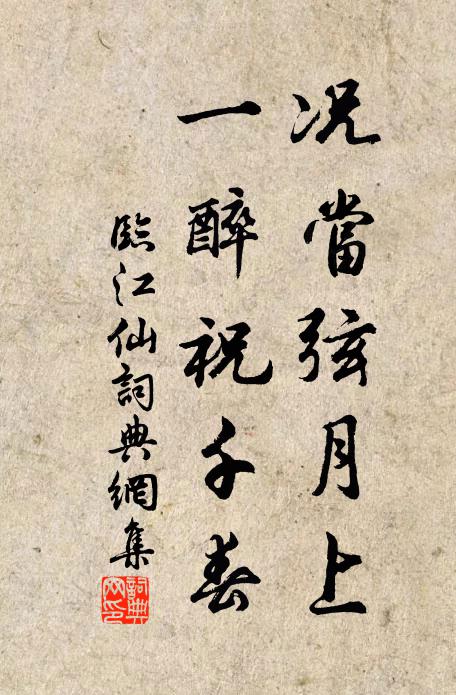 况當弦月上
一醉祝千春
臨江仙詞典網集
詞典
网印